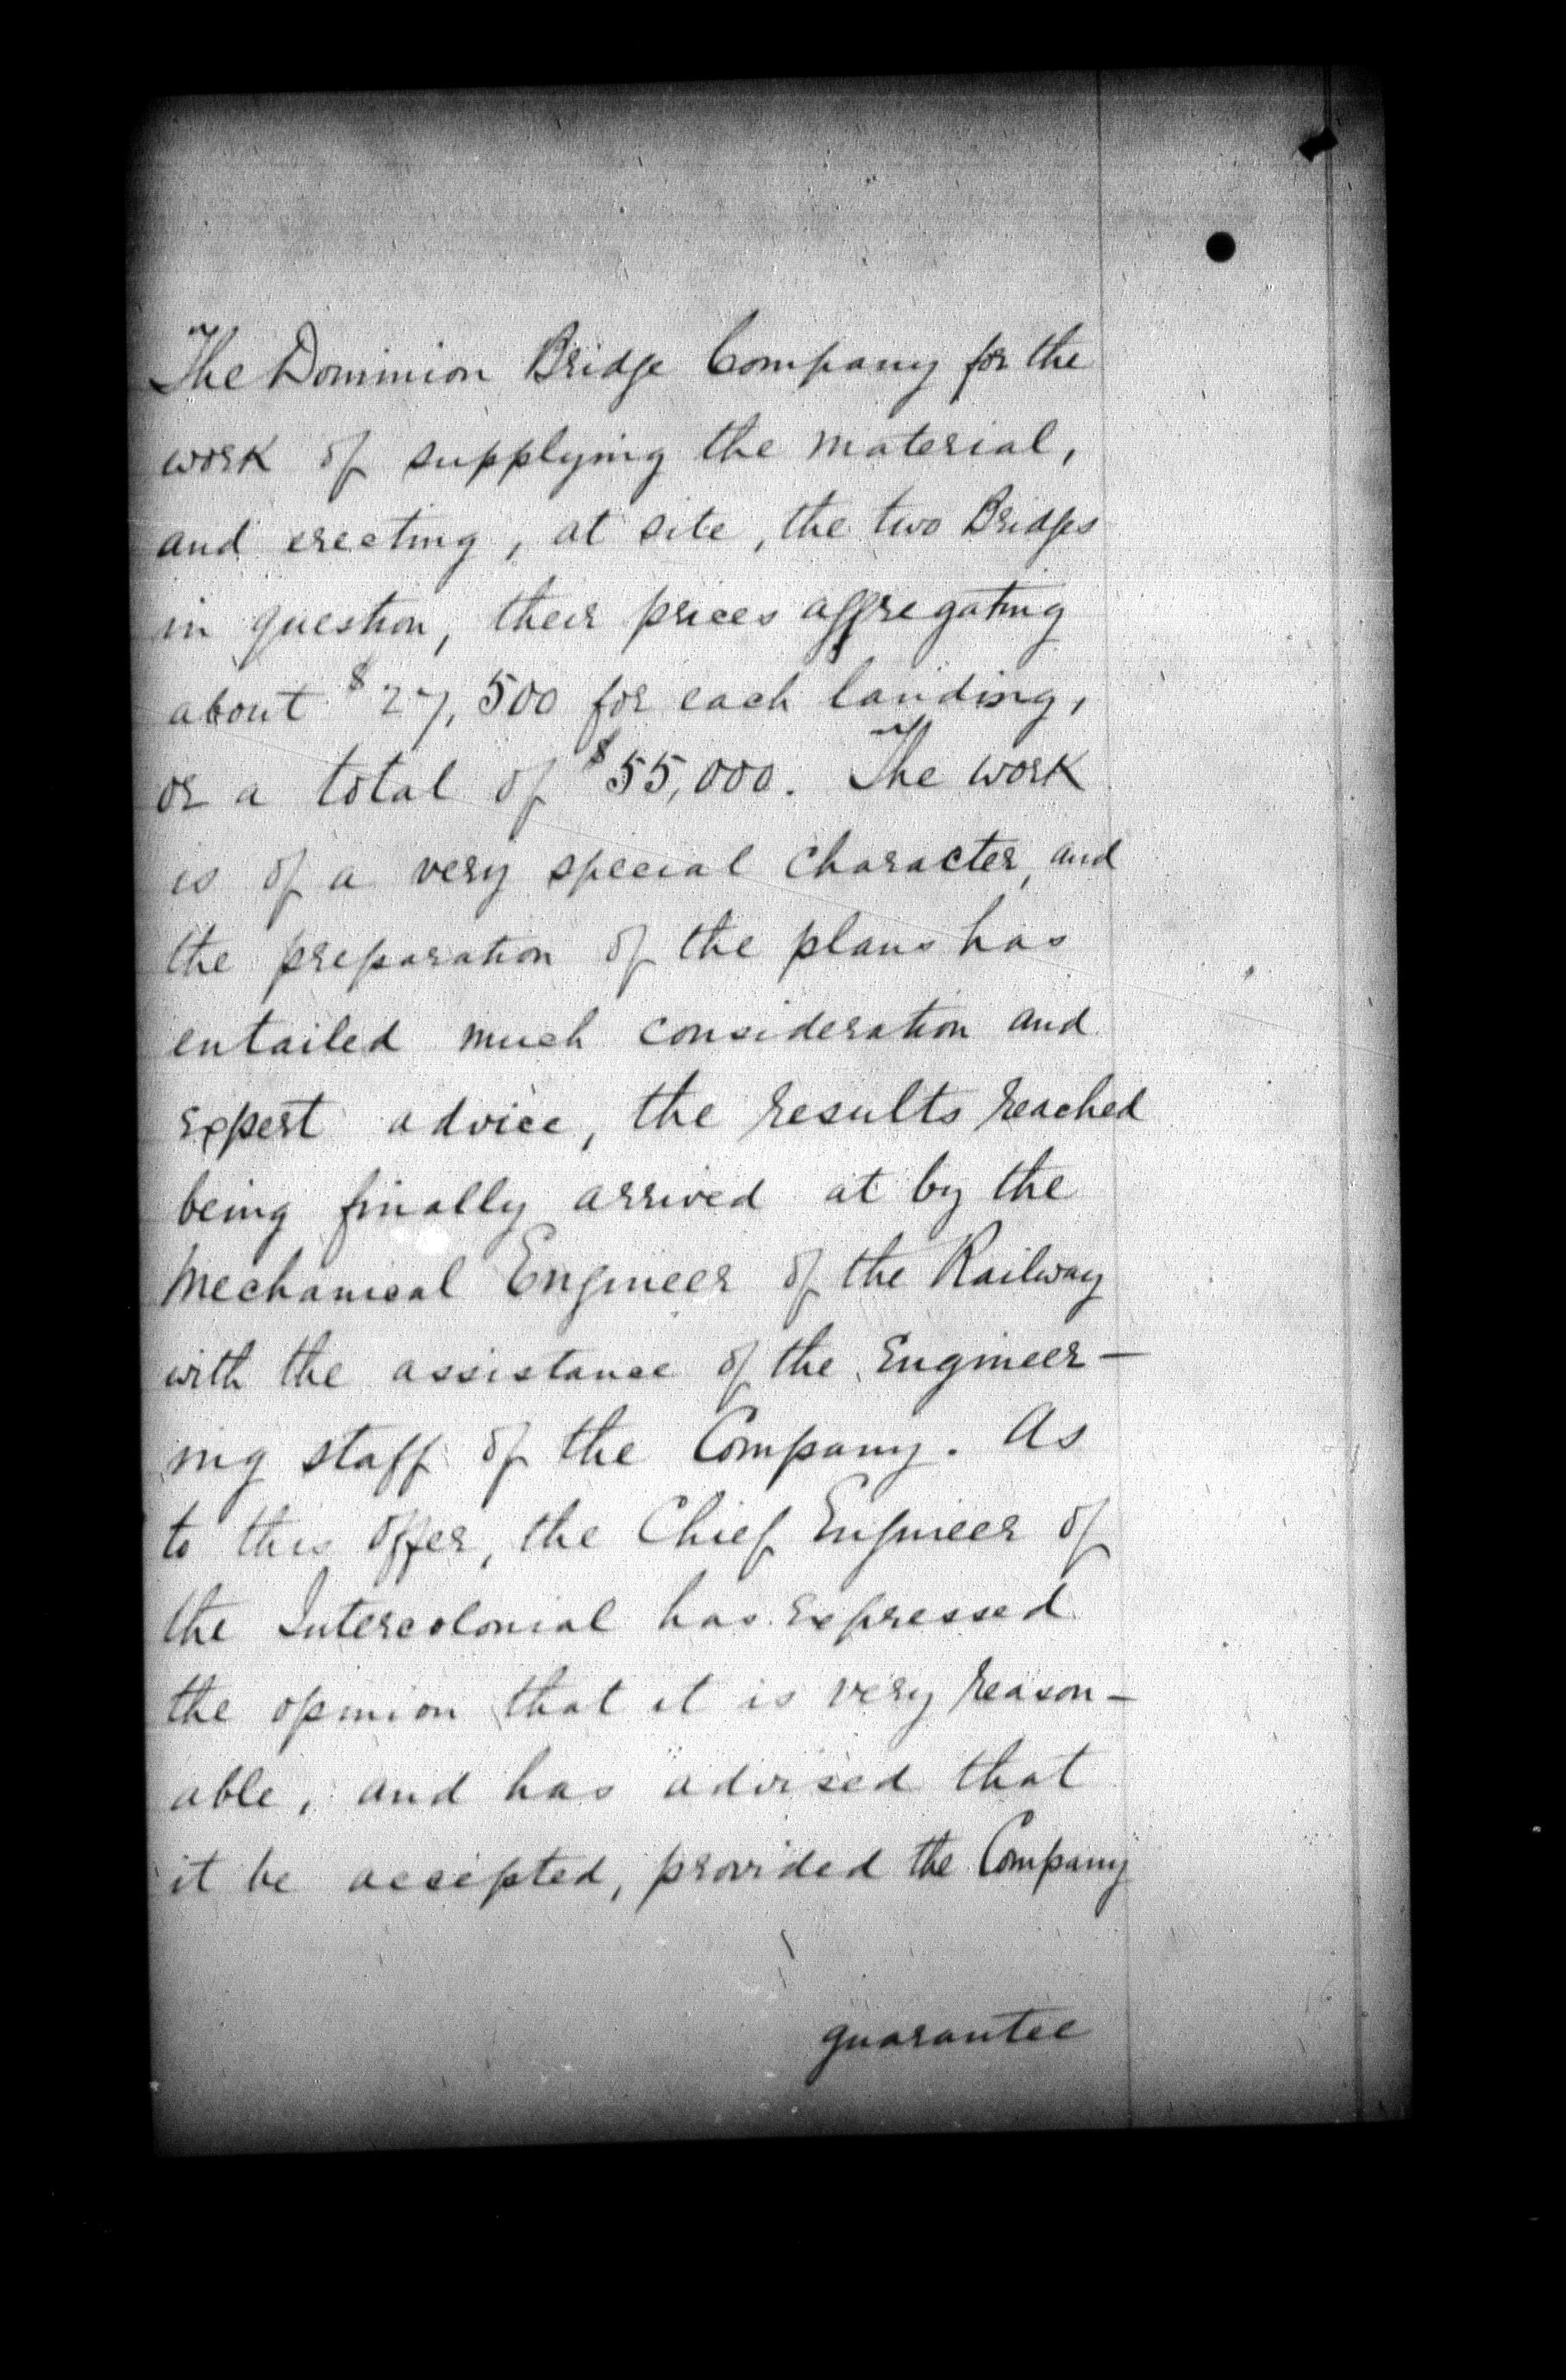 The Dominion Bridge Company for the
work of supplying the material,
and erecting, at site, the two Bridges
in question, their prices aggregating
about $27,500 for each landing,
or a total of $55,000. The work
is of a very special character, and
the preparation of the plans has
entailed much consideration and
expert advice, the results reached
being finally arrived at by the
Mechanical Engineer of the Railway
with the assistance of the Engineer-
ing staff of the Company. As
to this offer, the Chief Engineer of
the Intercolonial has expressed
the opinion that it is very reason-
able, and has advised that
it be accepted, provided the Company
guarantee